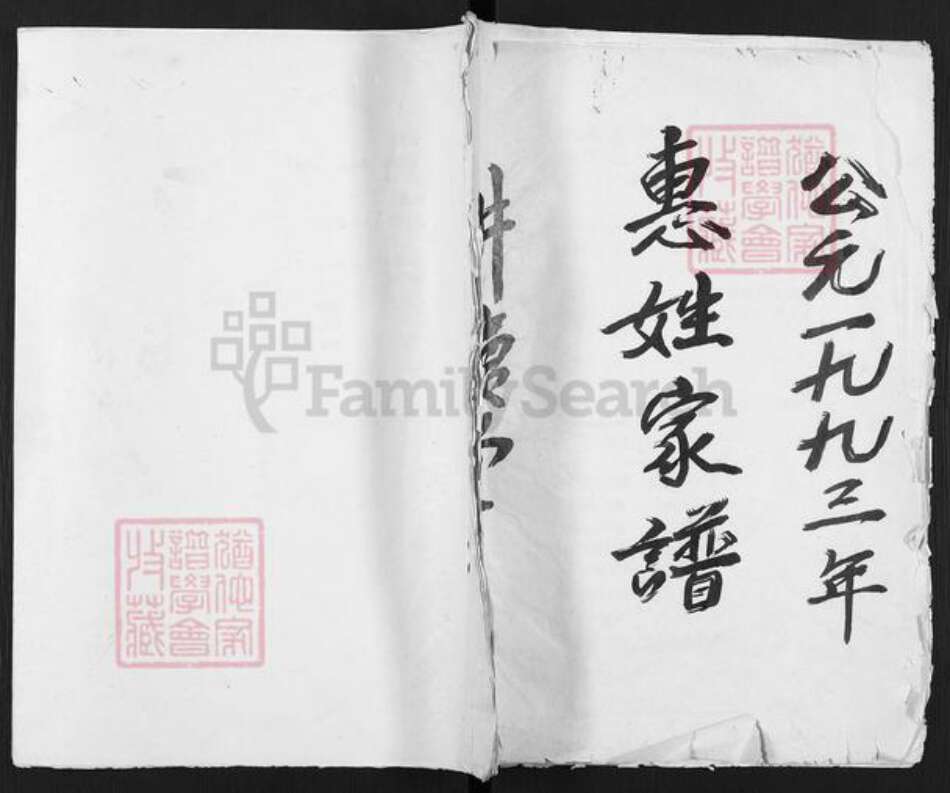 公元一九九三年
惠姓家譜
猶他家
譜學會
收藏
FamilySearch
猶他家
譜學會
收藏